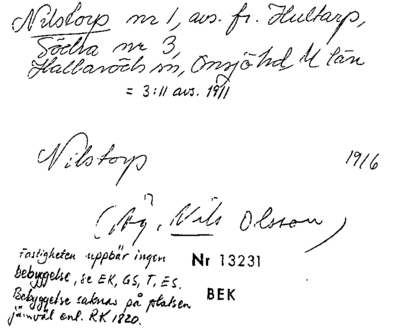 Nilstorp nr 1, avs. fr. Hultarp,
Södra nr 3,
Hallaröds sn, Onsjö hd, M län
= 3:11 avs. 1911
Nilstorp 1916
(Äg. Nils Olsson)
Fastigheten uppbär ingen
bebyggelse, se EK, GS, T, ES.
Bebyggelse saknas på platsen
jämväl enl. RK 1820.
Nr 13231
BEK